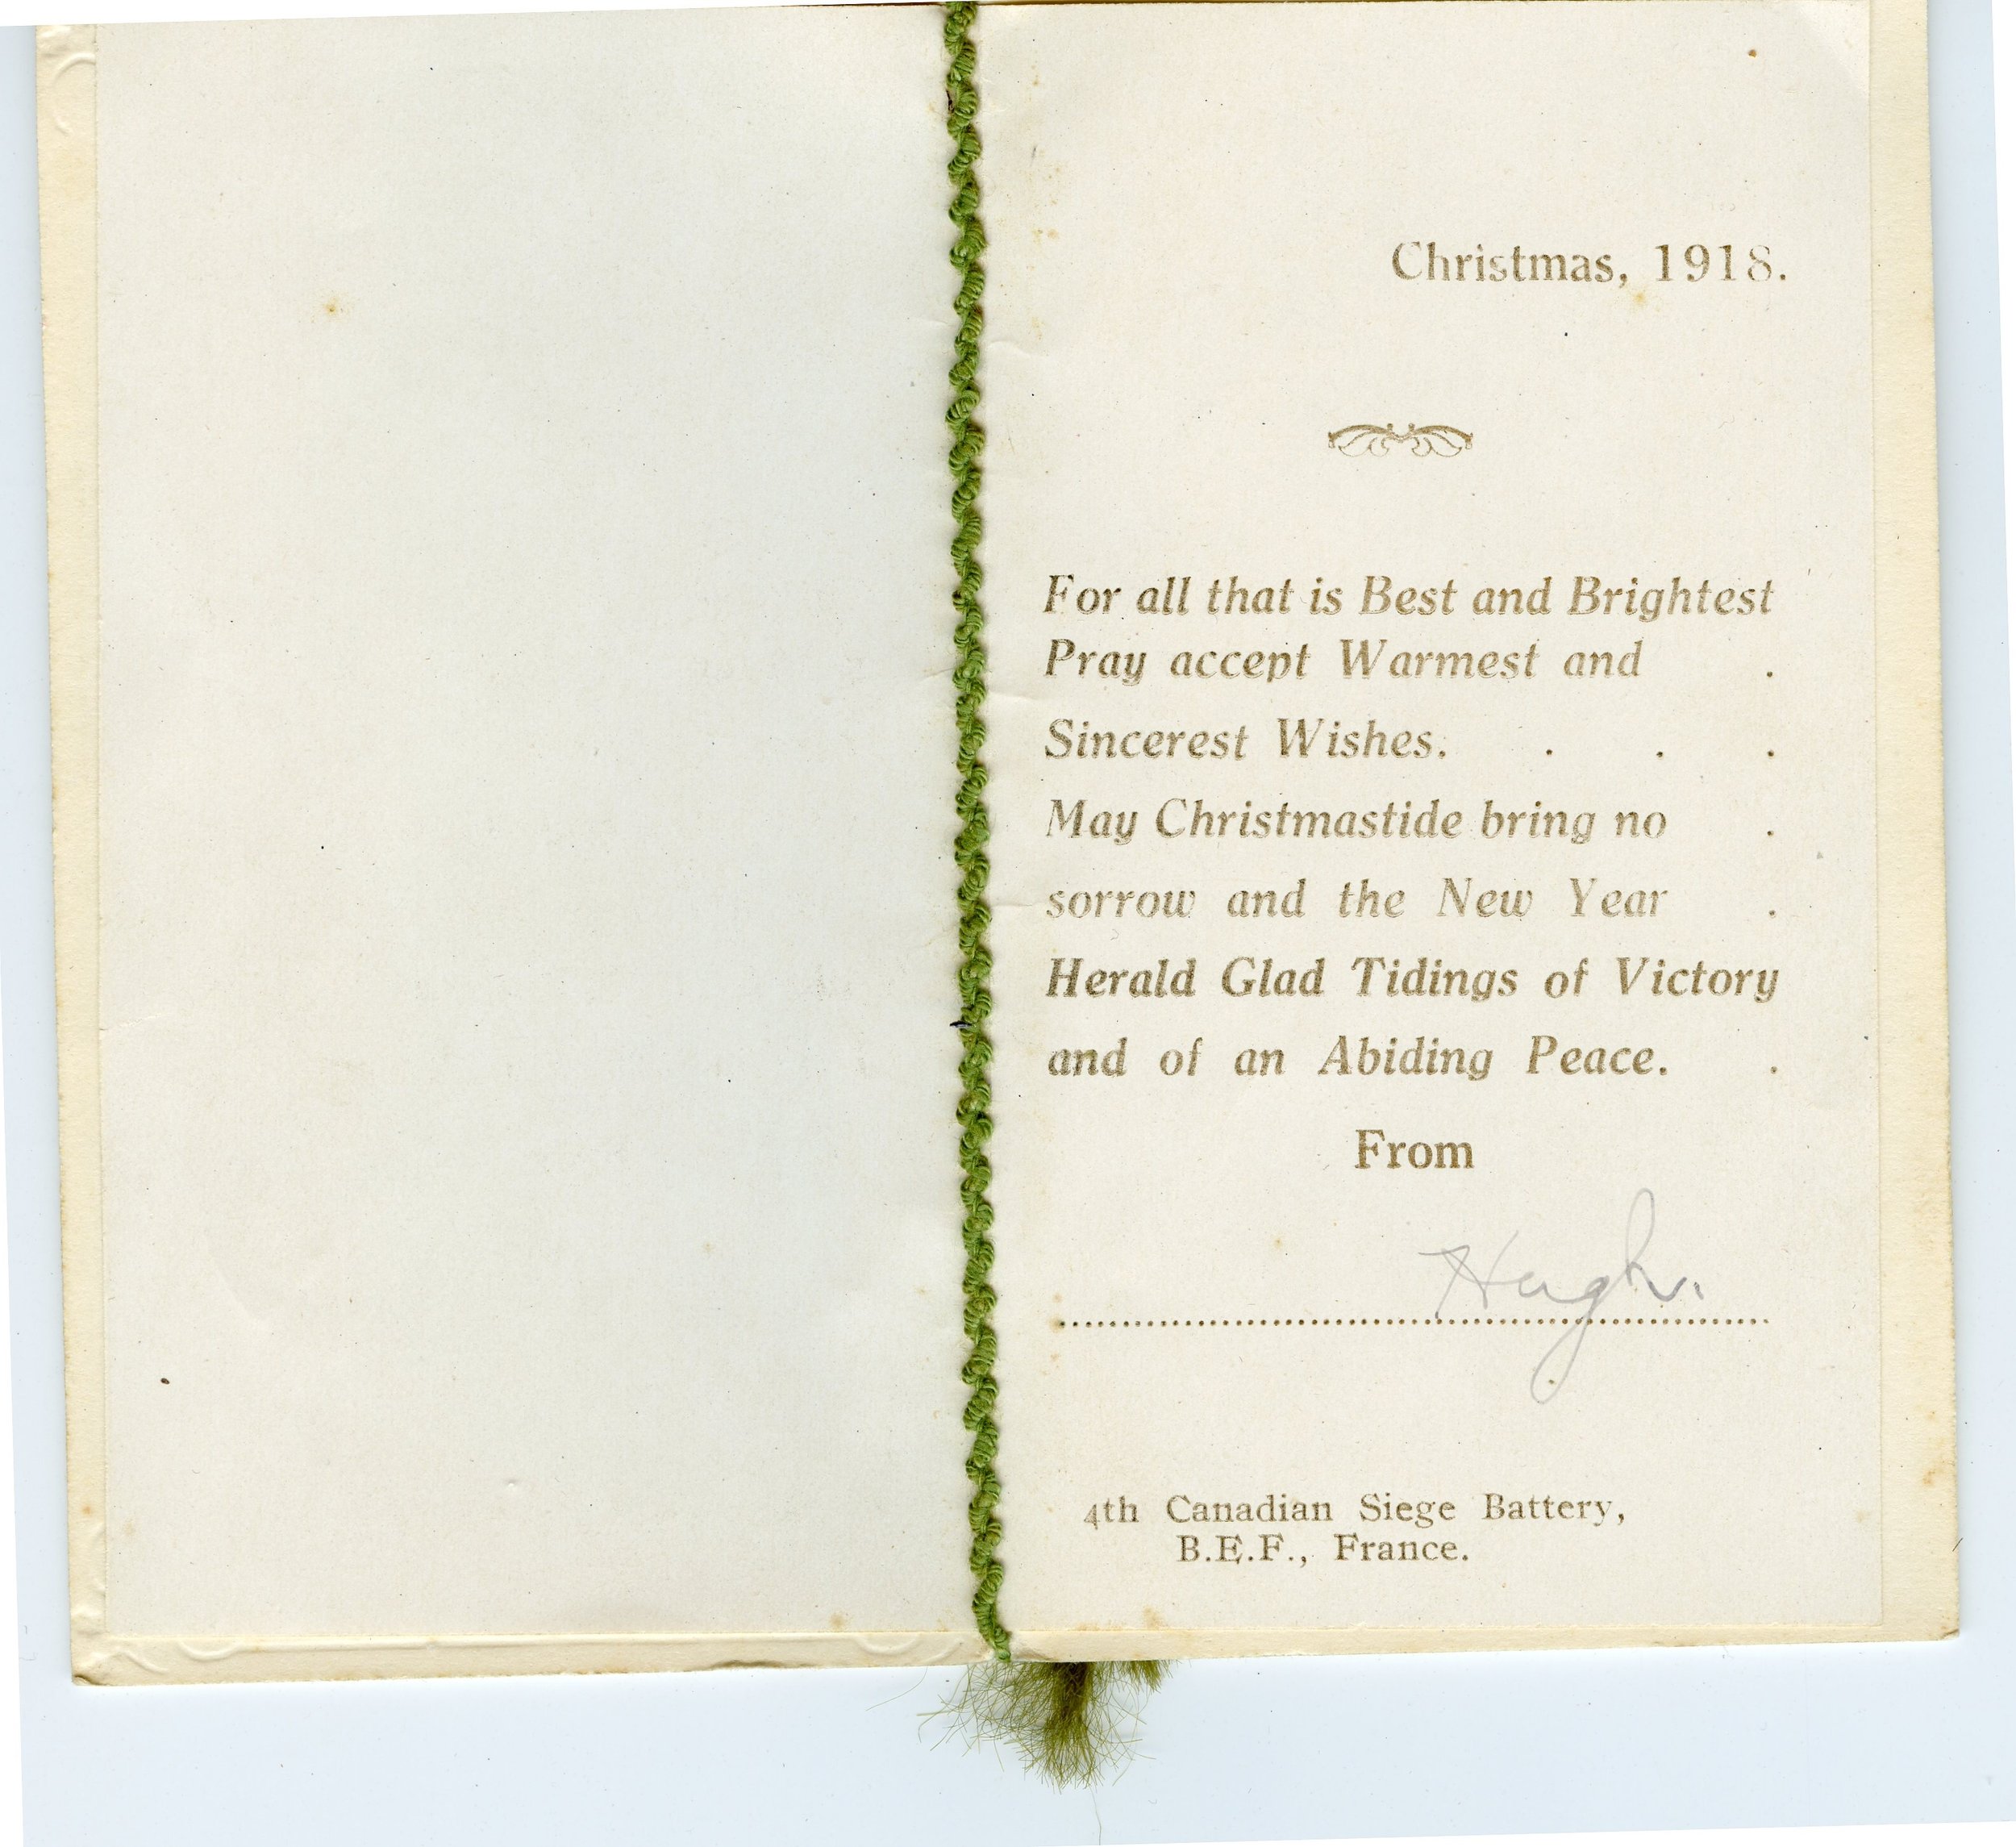 Christmas, 1918.
For all that is Best and Brightest
Pray accept Warmest and .
Sincerest Wishes. . . .
May Christmastide bring no .
sorrow and the New Year .
Herald Glad Tidings of Victory
and of an Abiding Peace. .
From
Hugh.
4th Canadian Siege Battery,
B.E.F., France.